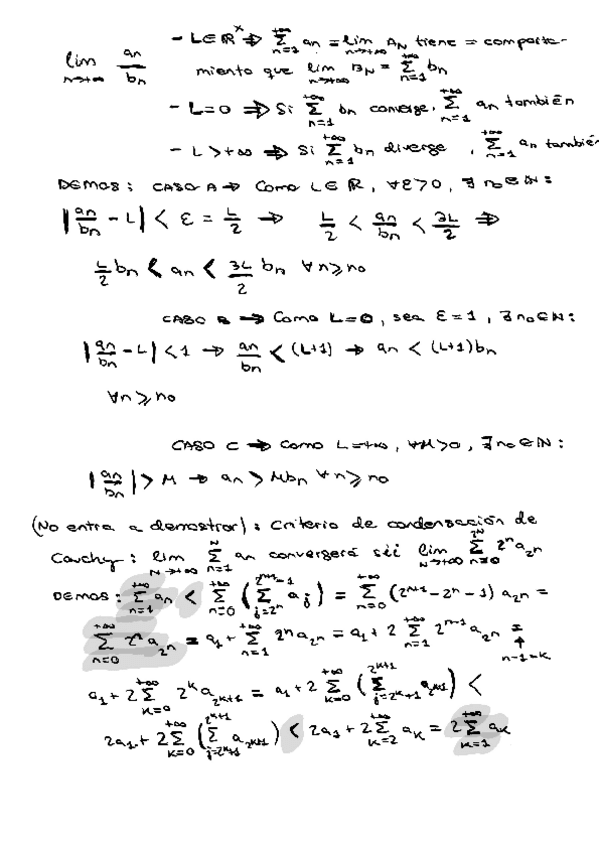 lim_{n→+∞} an/bn
- L∈ℝ^× ⇒ Σ_{n=1}^{+∞} an = lim_{n→+∞} A_N tiene = comporta-
miento que lim_{n→+∞} B_N = Σ_{n=1}^{+∞} bn
- L=0 ⇒ Si Σ_{n=1}^{+∞} bn converge, Σ_{n=1}^{+∞} an también
- L>+∞ ⇒ Si Σ_{n=1}^{+∞} bn diverge, Σ_{n=1}^{+∞} an también
DEMOS: CASO A → Como L∈ℝ, ∀ε>0, ∃ n₀∈ℕ:
|an/bn - L| < ε = L/2 → L/2 < an/bn < 3L/2 ⇒
L/2 bn < an < 3L/2 bn ∀n≥n₀
CASO B → Como L=0, sea ε=1, ∃ n₀∈ℕ:
|an/bn - L| < 1 → an/bn < (L+1) → an < (L+1)bn
∀n≥n₀
CASO C → Como L=+∞, ∀M>0, ∃ n₀∈ℕ:
|an/bn| > M → an > Mbn ∀n≥n₀
(No entra a demostrar): Criterio de condensación de
Cauchy: lim_{N→+∞} Σ_{n=1}^{N} an convergerá sii lim_{N→+∞} Σ_{n=0}^{N} 2^n a_{2^n}
DEMOS: Σ_{n=1}^{+∞} an < Σ_{n=0}^{+∞} (Σ_{j=2^n}^{2^{n+1}-1} a_j) = Σ_{n=0}^{+∞} (2^{n+1}-2^n-1) a_{2^n} =
Σ_{n=0}^{+∞} 2^n a_{2^n} = a₁ + Σ_{n=1}^{+∞} 2^n a_{2^n} = a₁ + 2 Σ_{n=1}^{+∞} 2^{n-1} a_{2^n} =
↑
n-1=k
a₁ + 2 Σ_{k=0}^{+∞} 2^k a_{2^{k+1}} = a₁ + 2 Σ_{k=0}^{+∞} (Σ_{j=2^k+1}^{2^{k+1}} a_{2^{k+1}}) <
2a₁ + 2 Σ_{k=0}^{+∞} (Σ_{j=2^k+1}^{2^{k+1}} a_{2^{k+1}}) < 2a₁ + 2 Σ_{k=2}^{+∞} a_k = 2 Σ_{k=1}^{+∞} a_k